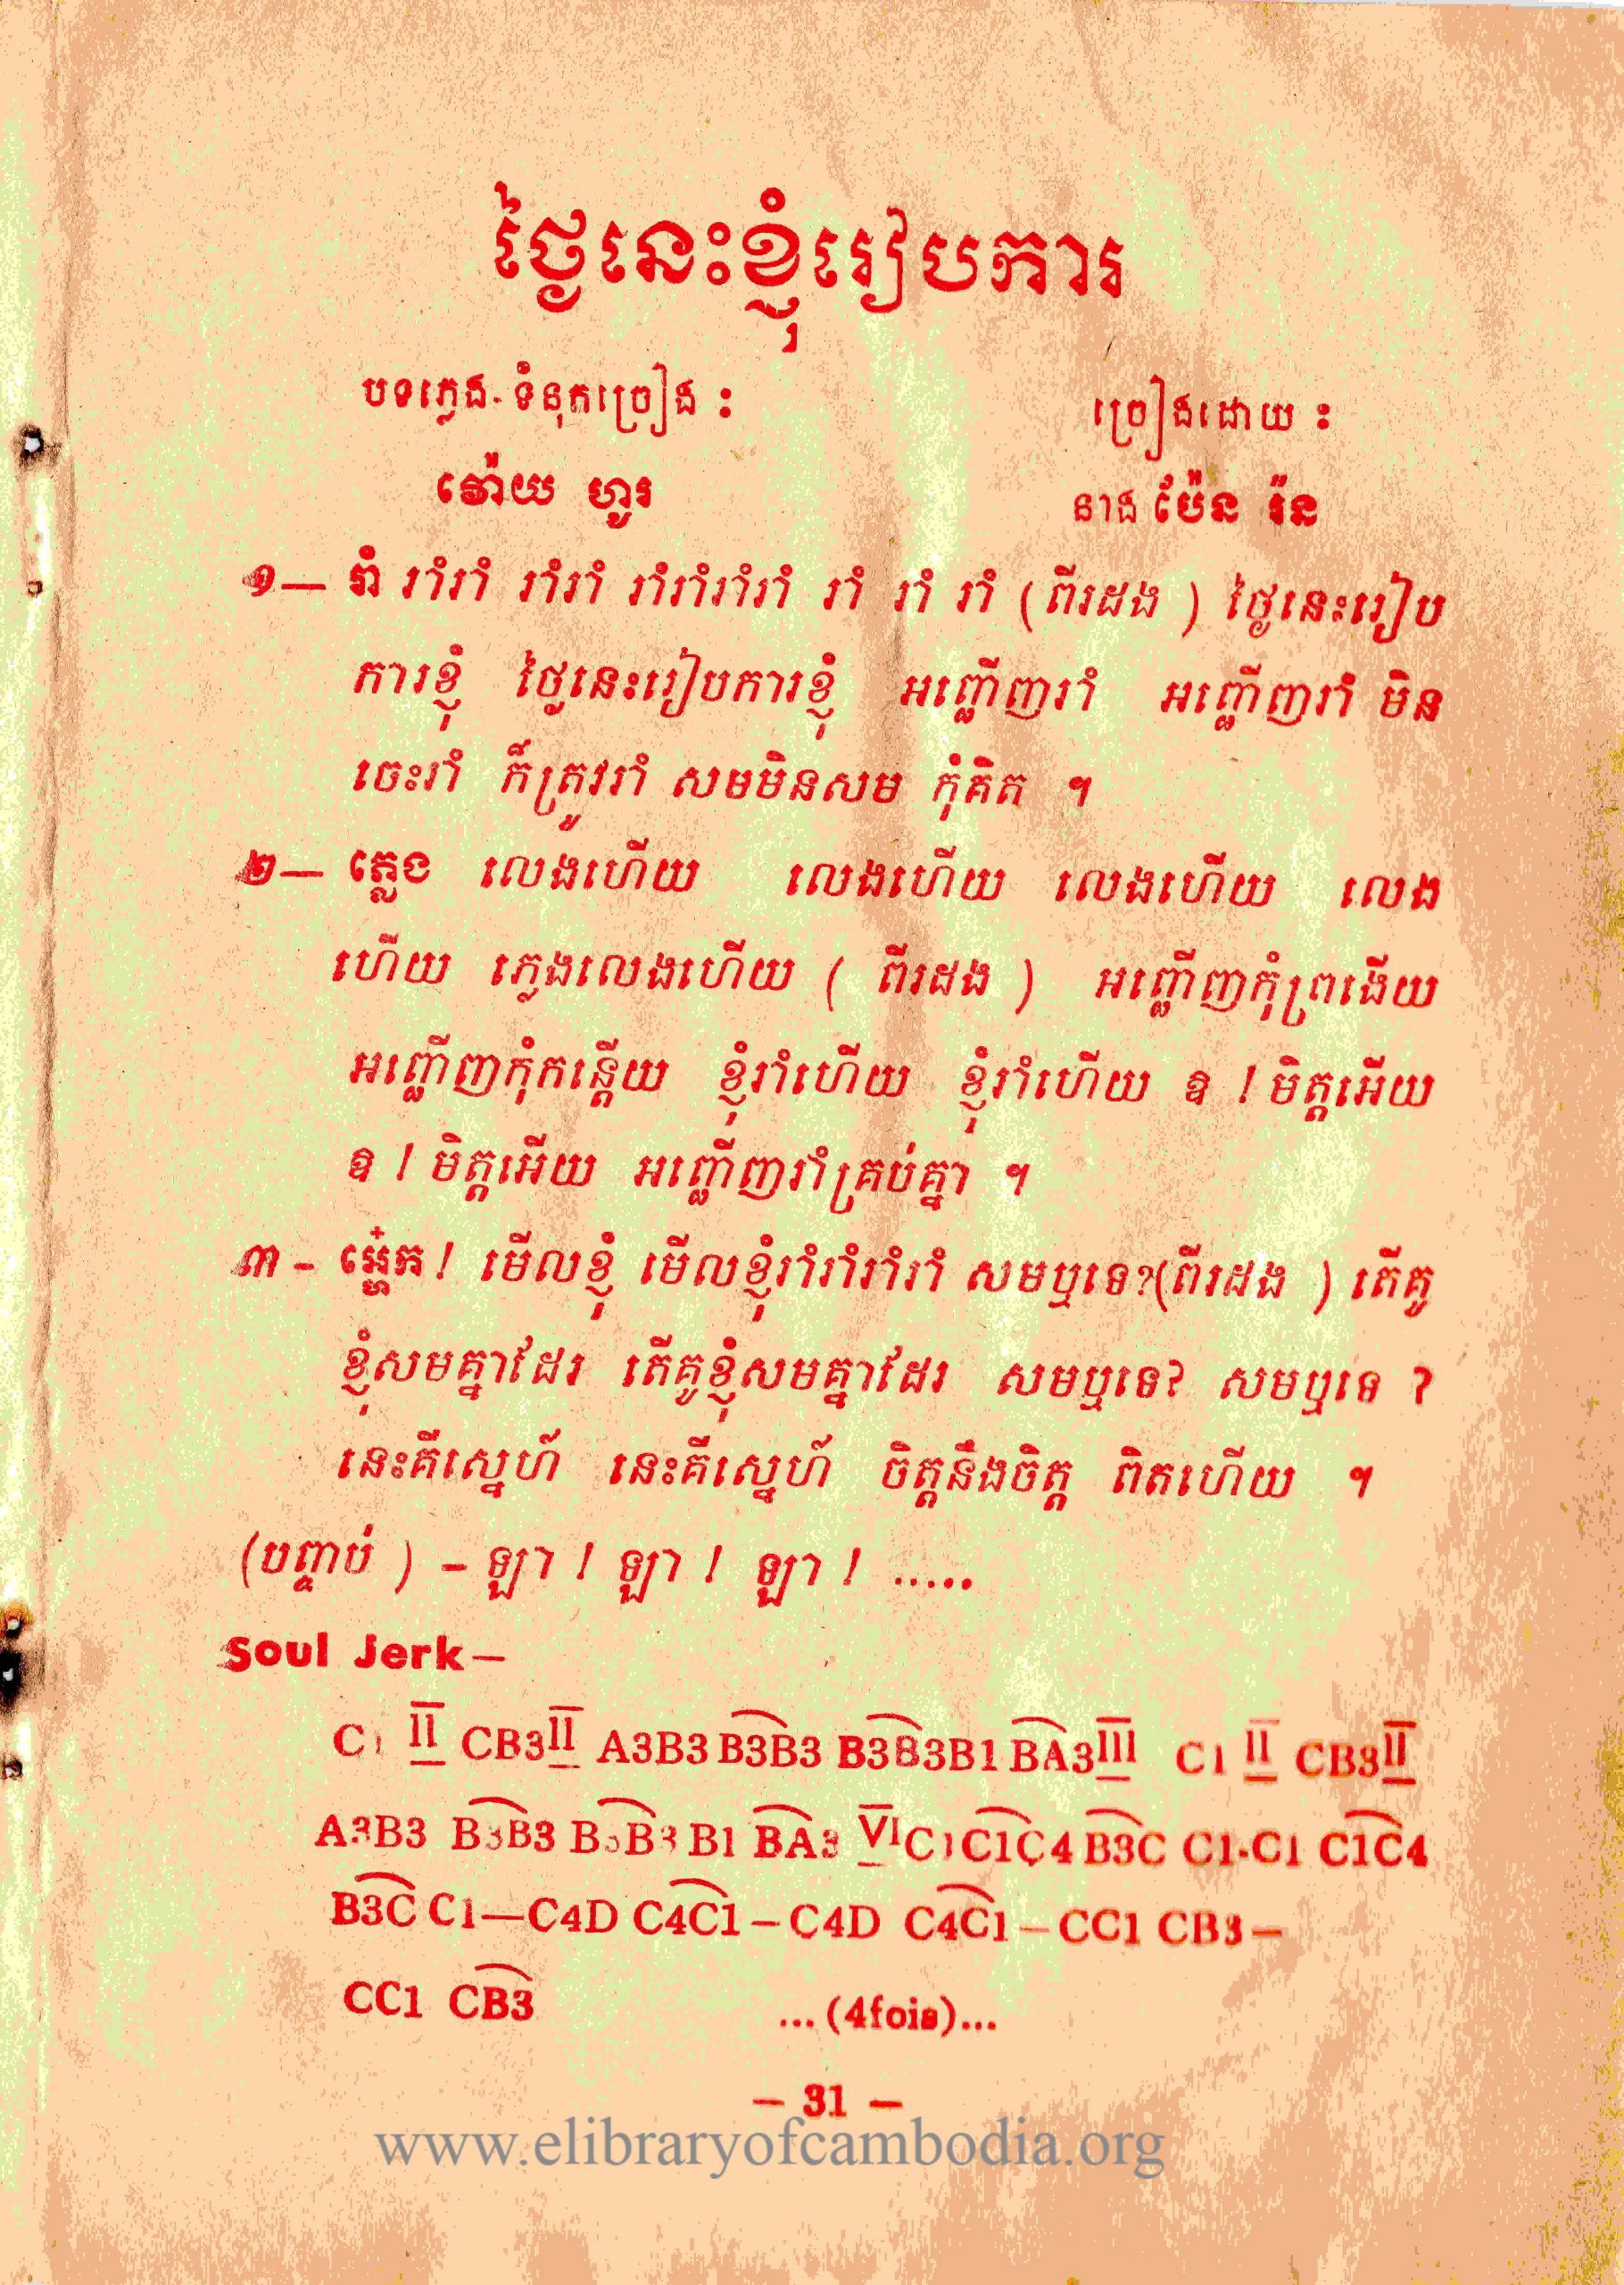 ថ្ងៃនេះខ្ញុំរៀបការ
បទភ្លេង-ទំនុកច្រៀង ៖
ច្រៀងដោយ ៖
វ៉ោយ ហូរ
នាង ប៉ែន រ៉ន
១— រាំ រាំរាំ រាំរាំ រាំរាំរាំរាំ រាំ រាំ រាំ (ពីរដង ) ថ្ងៃនេះរៀប
ការខ្ញុំ ថ្ងៃនេះរៀបការខ្ញុំ អញ្ជើញរាំ អញ្ជើញរាំ មិន
ចេះរាំ ក៏ត្រូវរាំ សមមិនសម កុំគិត ។
២— ភ្លេង លេងហើយ លេងហើយ លេងហើយ លេង
ហើយ ភ្លេងលេងហើយ ( ពីរដង ) អញ្ជើញកុំព្រងើយ
អញ្ជើញកុំកន្តើយ ខ្ញុំរាំហើយ ខ្ញុំរាំហើយ ឱ ! មិត្តអើយ
ឱ ! មិត្តអើយ អញ្ជើញរាំគ្រប់គ្នា ។
៣ - ! មើលខ្ញុំ មើលខ្ញុំរាំរាំរាំរាំ សមឬទេ?(ពីរដង ) តើគូ
ខ្ញុំសមគ្នាដែរ តើគូខ្ញុំសមគ្នាដែរ សមឬទេ? សមឬទេ ?
នេះគឺស្នេហ៍ នេះគឺស្នេហ៍ ចិត្តនឹងចិត្ត ពិតហើយ ។
(បញ្ចប់ ) - ឡា ! ឡា ! ឡា ! .....
Soul Jerk—
C1 II CB3II A3B3 B3B3 B3B3B1 BA3III C1 II CB3II
A3B3 B3B3 B3B3 B1 BA3 VIC1C1C4 B3C C1.C1 C1C4
B3C C1—C4D C4C1—C4D C4C1—CC1 CB3—
CC1 CB3 ...(4fois)...
— 31 —
www.elibraryofcambodia.org